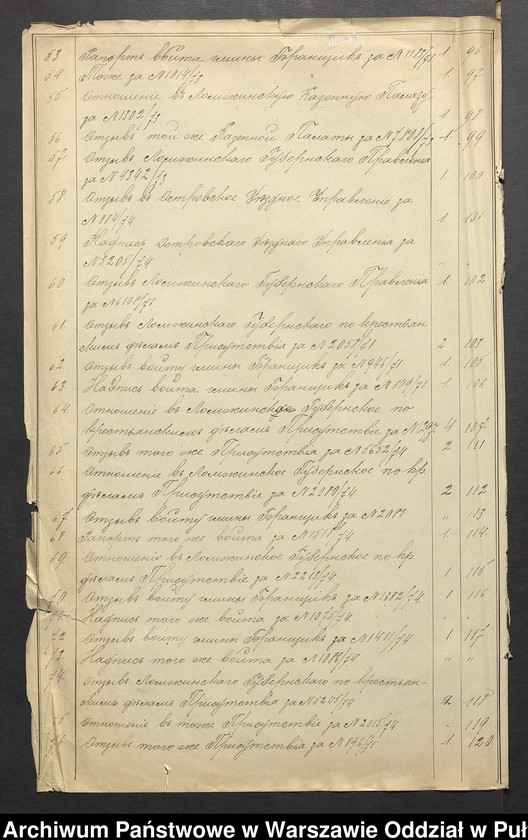 53 Рапортъ войта гмины Бранщикъ за № 1182/71 1 96
54 Тоже за № 1014/73 1 97
55 Отношеніе въ Ломжинскую Казенную Палату
за № 1302/73 1 98
56 Отзывъ той же Казенной Палаты за № 7809/73 1 99
57 Отзывъ Ломжинскаго Губернскаго Правленія
за № 4342/73 1 100
58 Отзывъ въ Островское Уѣздное Управленіе за
№ 884/74 1 101
59 Надпись Островскаго Уѣзднаго Управленія за
№ 5205/74 " "
60 Отзывъ Ломжинскаго Губернскаго Правленія 1 102
за № 6101/75
61 Отзывъ Ломжинскаго Губернскаго по крестьян-
скимъ дѣламъ Присутствія за № 2057/71 2 103
62 Отзывъ войту гмины Бранщикъ за № 946/71 1 105
63 Надпись войта гмины Бранщикъ за № 809/71 1 106
64 Отношеніе въ Ломжинское Губернское по
крестьянскимъ дѣламъ Присутствіе за № 4 107
65 Отзывъ того же Присутствія за № 5652/74 2 111
66 Отношеніе въ Ломжинское Губернское по кр.
дѣламъ Присутствіе за № 2080/74 2 112
67 Отзывъ войту гмины Бранщикъ за № 2081 " 113
68 Рапортъ того же войта за № 1517/74 1 114
69 Отношеніе въ Ломжинское Губернское по кр.
дѣламъ Присутствіе за № 2213/74 1 115
70 Отзывъ войту гмины Бранщикъ за № 1682/74 1 116
71 Надпись того же войта за № 1075/74 " "
72 Отзывъ войту гмины Бранщикъ за № 1411/74 1 117
73 Надпись того же войта за № 1089/74 " "
74 Отзывъ Ломжинскаго Губернскаго по крестьян-
скимъ дѣламъ Присутствія за № 5245/74 2 118
75 Отношеніе въ тоже Присутствіе за № 2015/74 - 119
76 Отзывъ того же Присутствія за № 196/75 1 120
Archiwum Państwowe w Warszawie Oddział w Puł